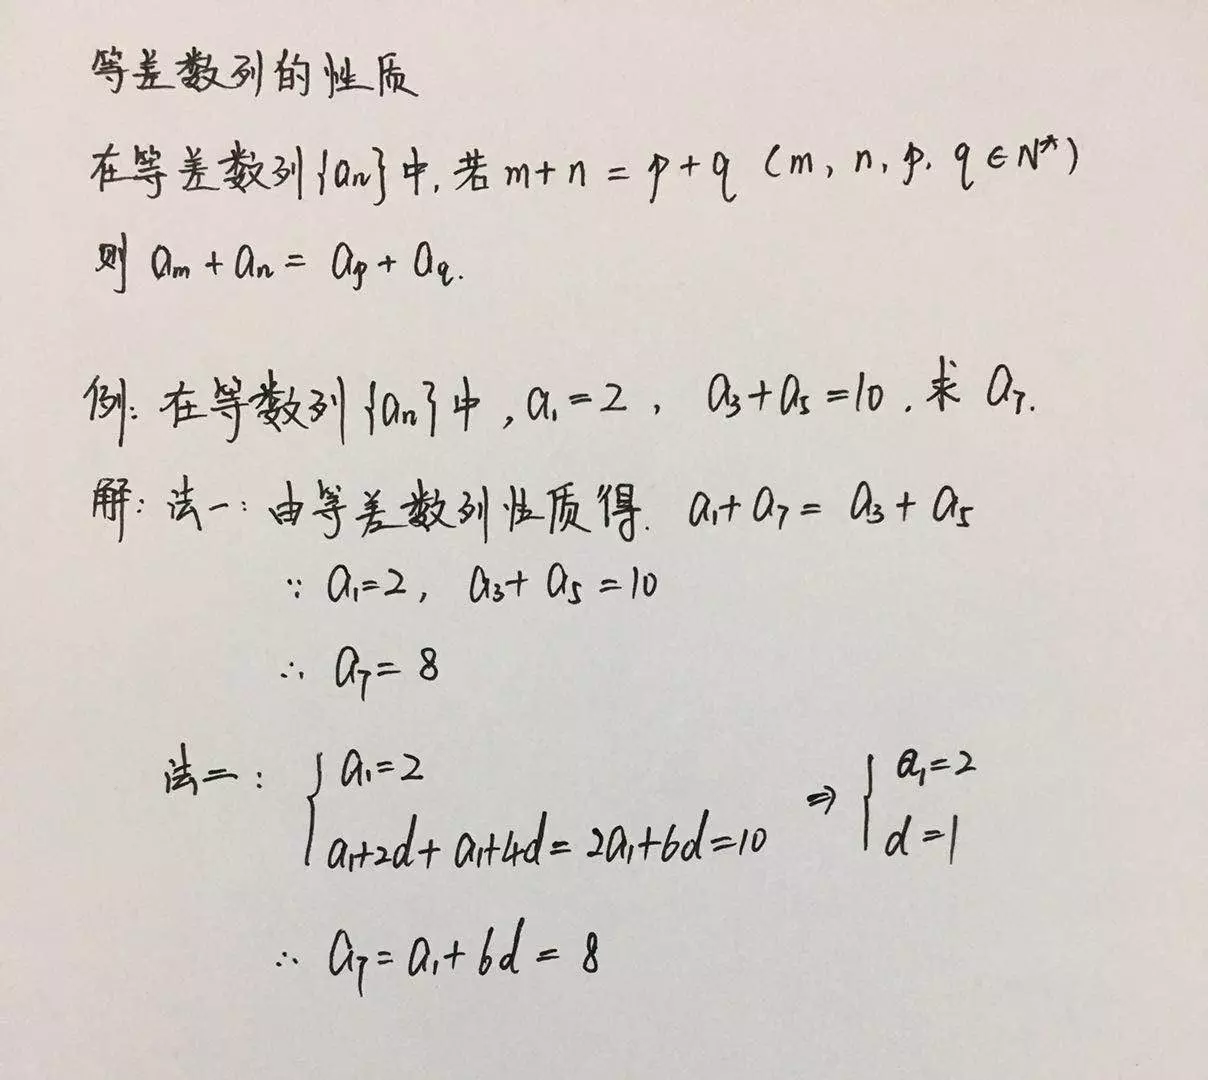 等差数列的性质
在等差数列{aₙ}中,若m+n=p+q (m,n,p,q∈N*)
则 aₘ+aₙ=aₚ+a_q.
例:在等数列{aₙ}中,a₁=2,a₃+a₅=10.求a₇.
解:法一:由等差数列性质得.a₁+a₇=a₃+a₅
∵ a₁=2,a₃+a₅=10
∴ a₇=8
法二:{a₁=2 ⇒ {a₁=2
a₁+2d+a₁+4d=2a₁+6d=10 d=1
∴ a₇=a₁+6d=8